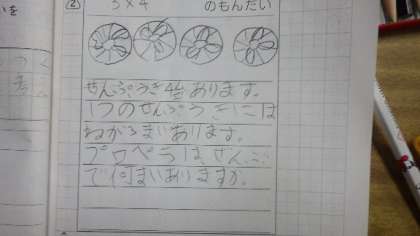 ② 3×4 のもんだい
せんぷうき4台あります。
1つのせんぷうきには
ねが3まいあります。
プロペラは、ぜんぶ
で何まいありますか。
を